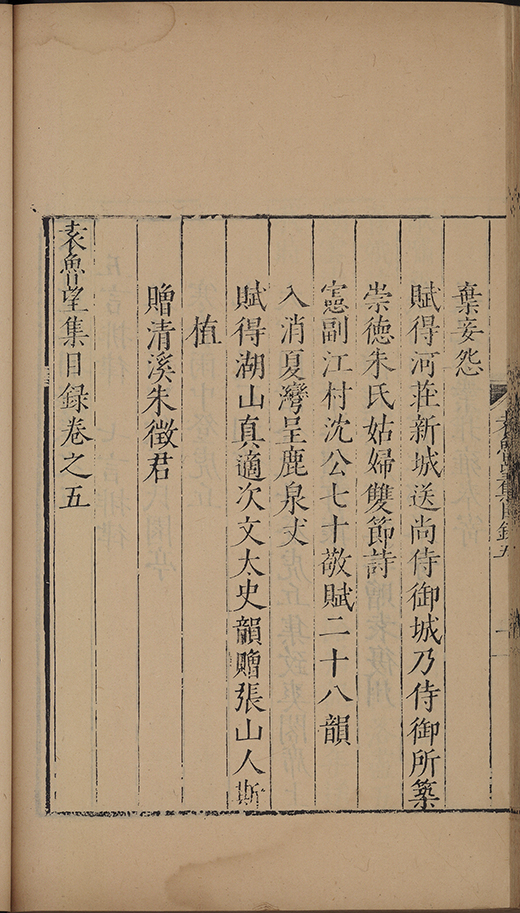 棄妾怨
賦得河莊新城送尚侍御城乃侍御所築
崇德朱氏姑婦雙節詩
憲副江村沈公七十敬賦二十八韻
入消夏灣呈鹿泉丈
賦得湖山真適次文太史韻贈張山人斯
植
贈清溪朱徵君
袁魯望集目録卷之五